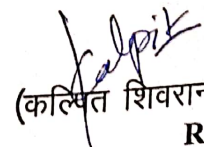 Kalpit
(कल्पित शिवरान
R